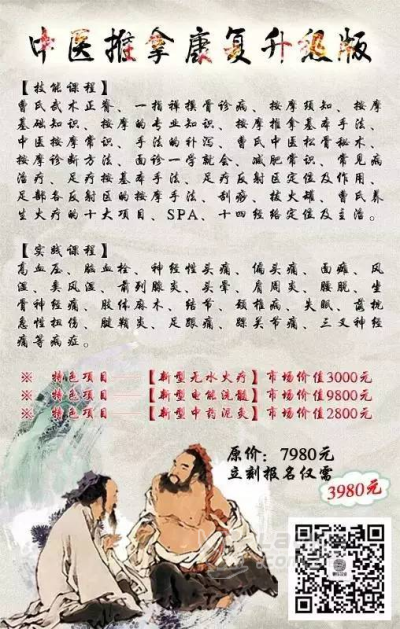 中医推拿康复升级版
【技能课程】
曹氏武术正脊、一指禅摸骨诊病、按摩须知、按摩
基础知识、按摩的专业知识、按摩推拿基本手法、
中医按摩常识、手法的补泻、曹氏中医松骨秘术、
按摩诊断方法、面诊一学就会、减肥常识、常见病
治疗、足疗按基本手法、足疗反射区定位及作用、
足部各反射区的按摩手法、刮痧、拔火罐、曹氏养
生火疗的十大项目、SPA、十四经络定位及主治。
【实践课程】
高血压、脑血栓、神经性头痛、偏头痛、面瘫、风
湿、类风湿、前列腺炎、头晕、肩周炎、腰脱、坐
骨神经痛、肢体麻木、结节、颈椎病、失眠、落枕
急性扭伤、腱鞘炎、足跟痛、踝关节痛、三叉神经
痛等病症。
※ 特色项目——【新型无水火疗】市场价值3000元
※ 特色项目——【新型电能洗髓】市场价值9800元
※ 特色项目——【新型中药泥灸】市场价值2800元
原价：7980元
立刻报名仅需
3980元